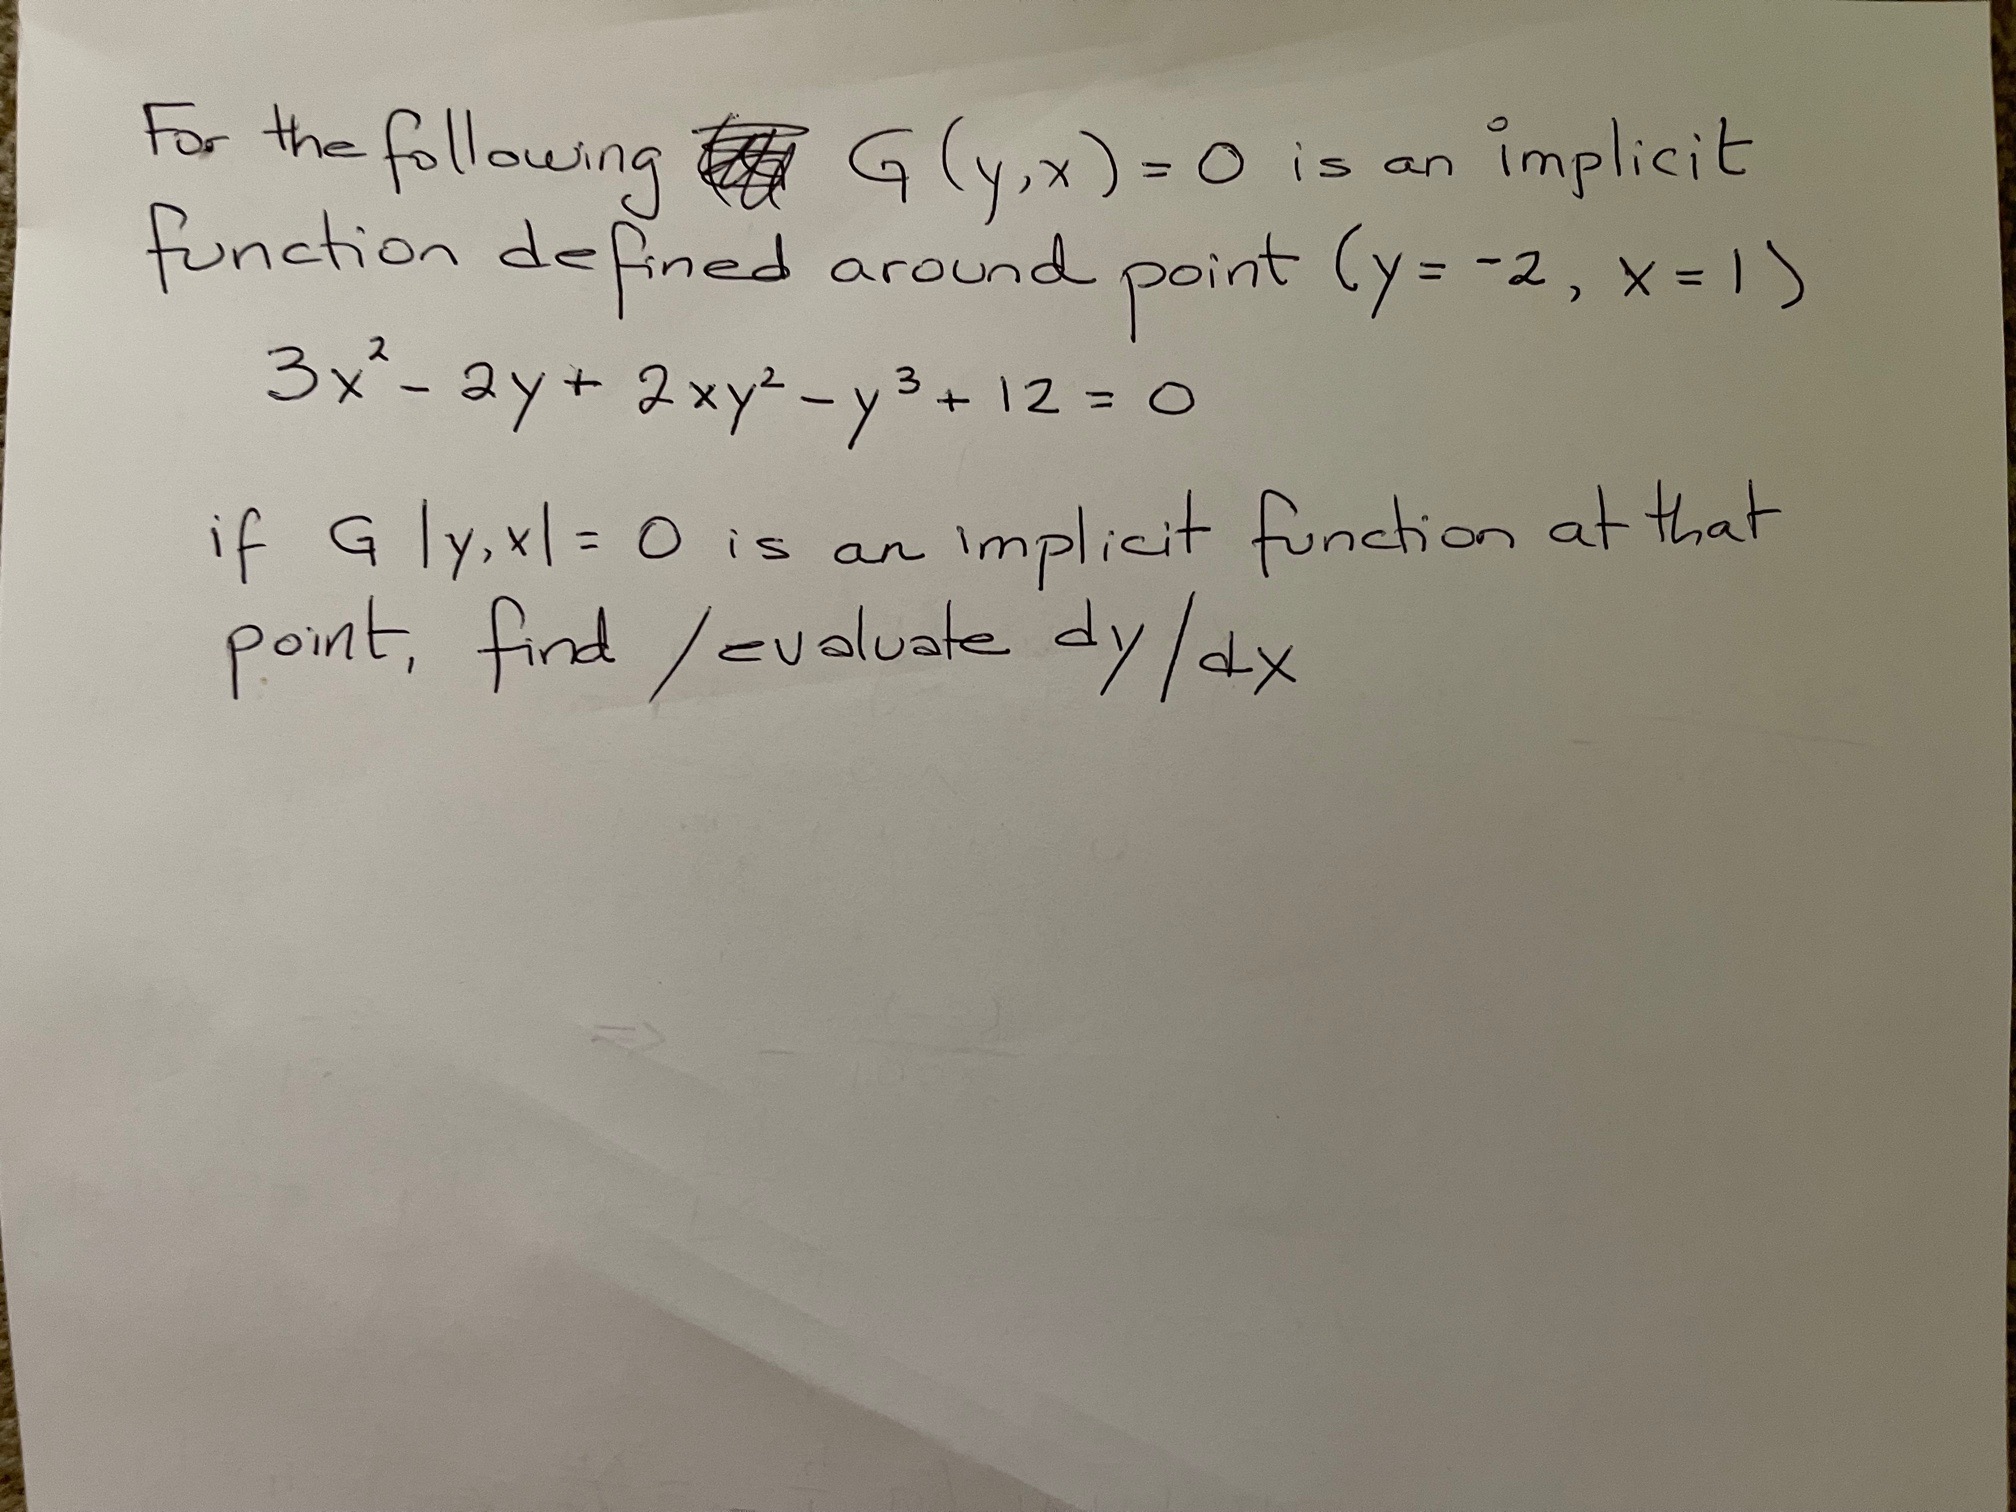 For the following G(y,x)=0 is an implicit
function defined around point (y=-2, x=1)
3x²-2y+2xy²-y³+12=0
if G|y,x|=0 is an implicit function at that
point, find /evaluate dy/dx